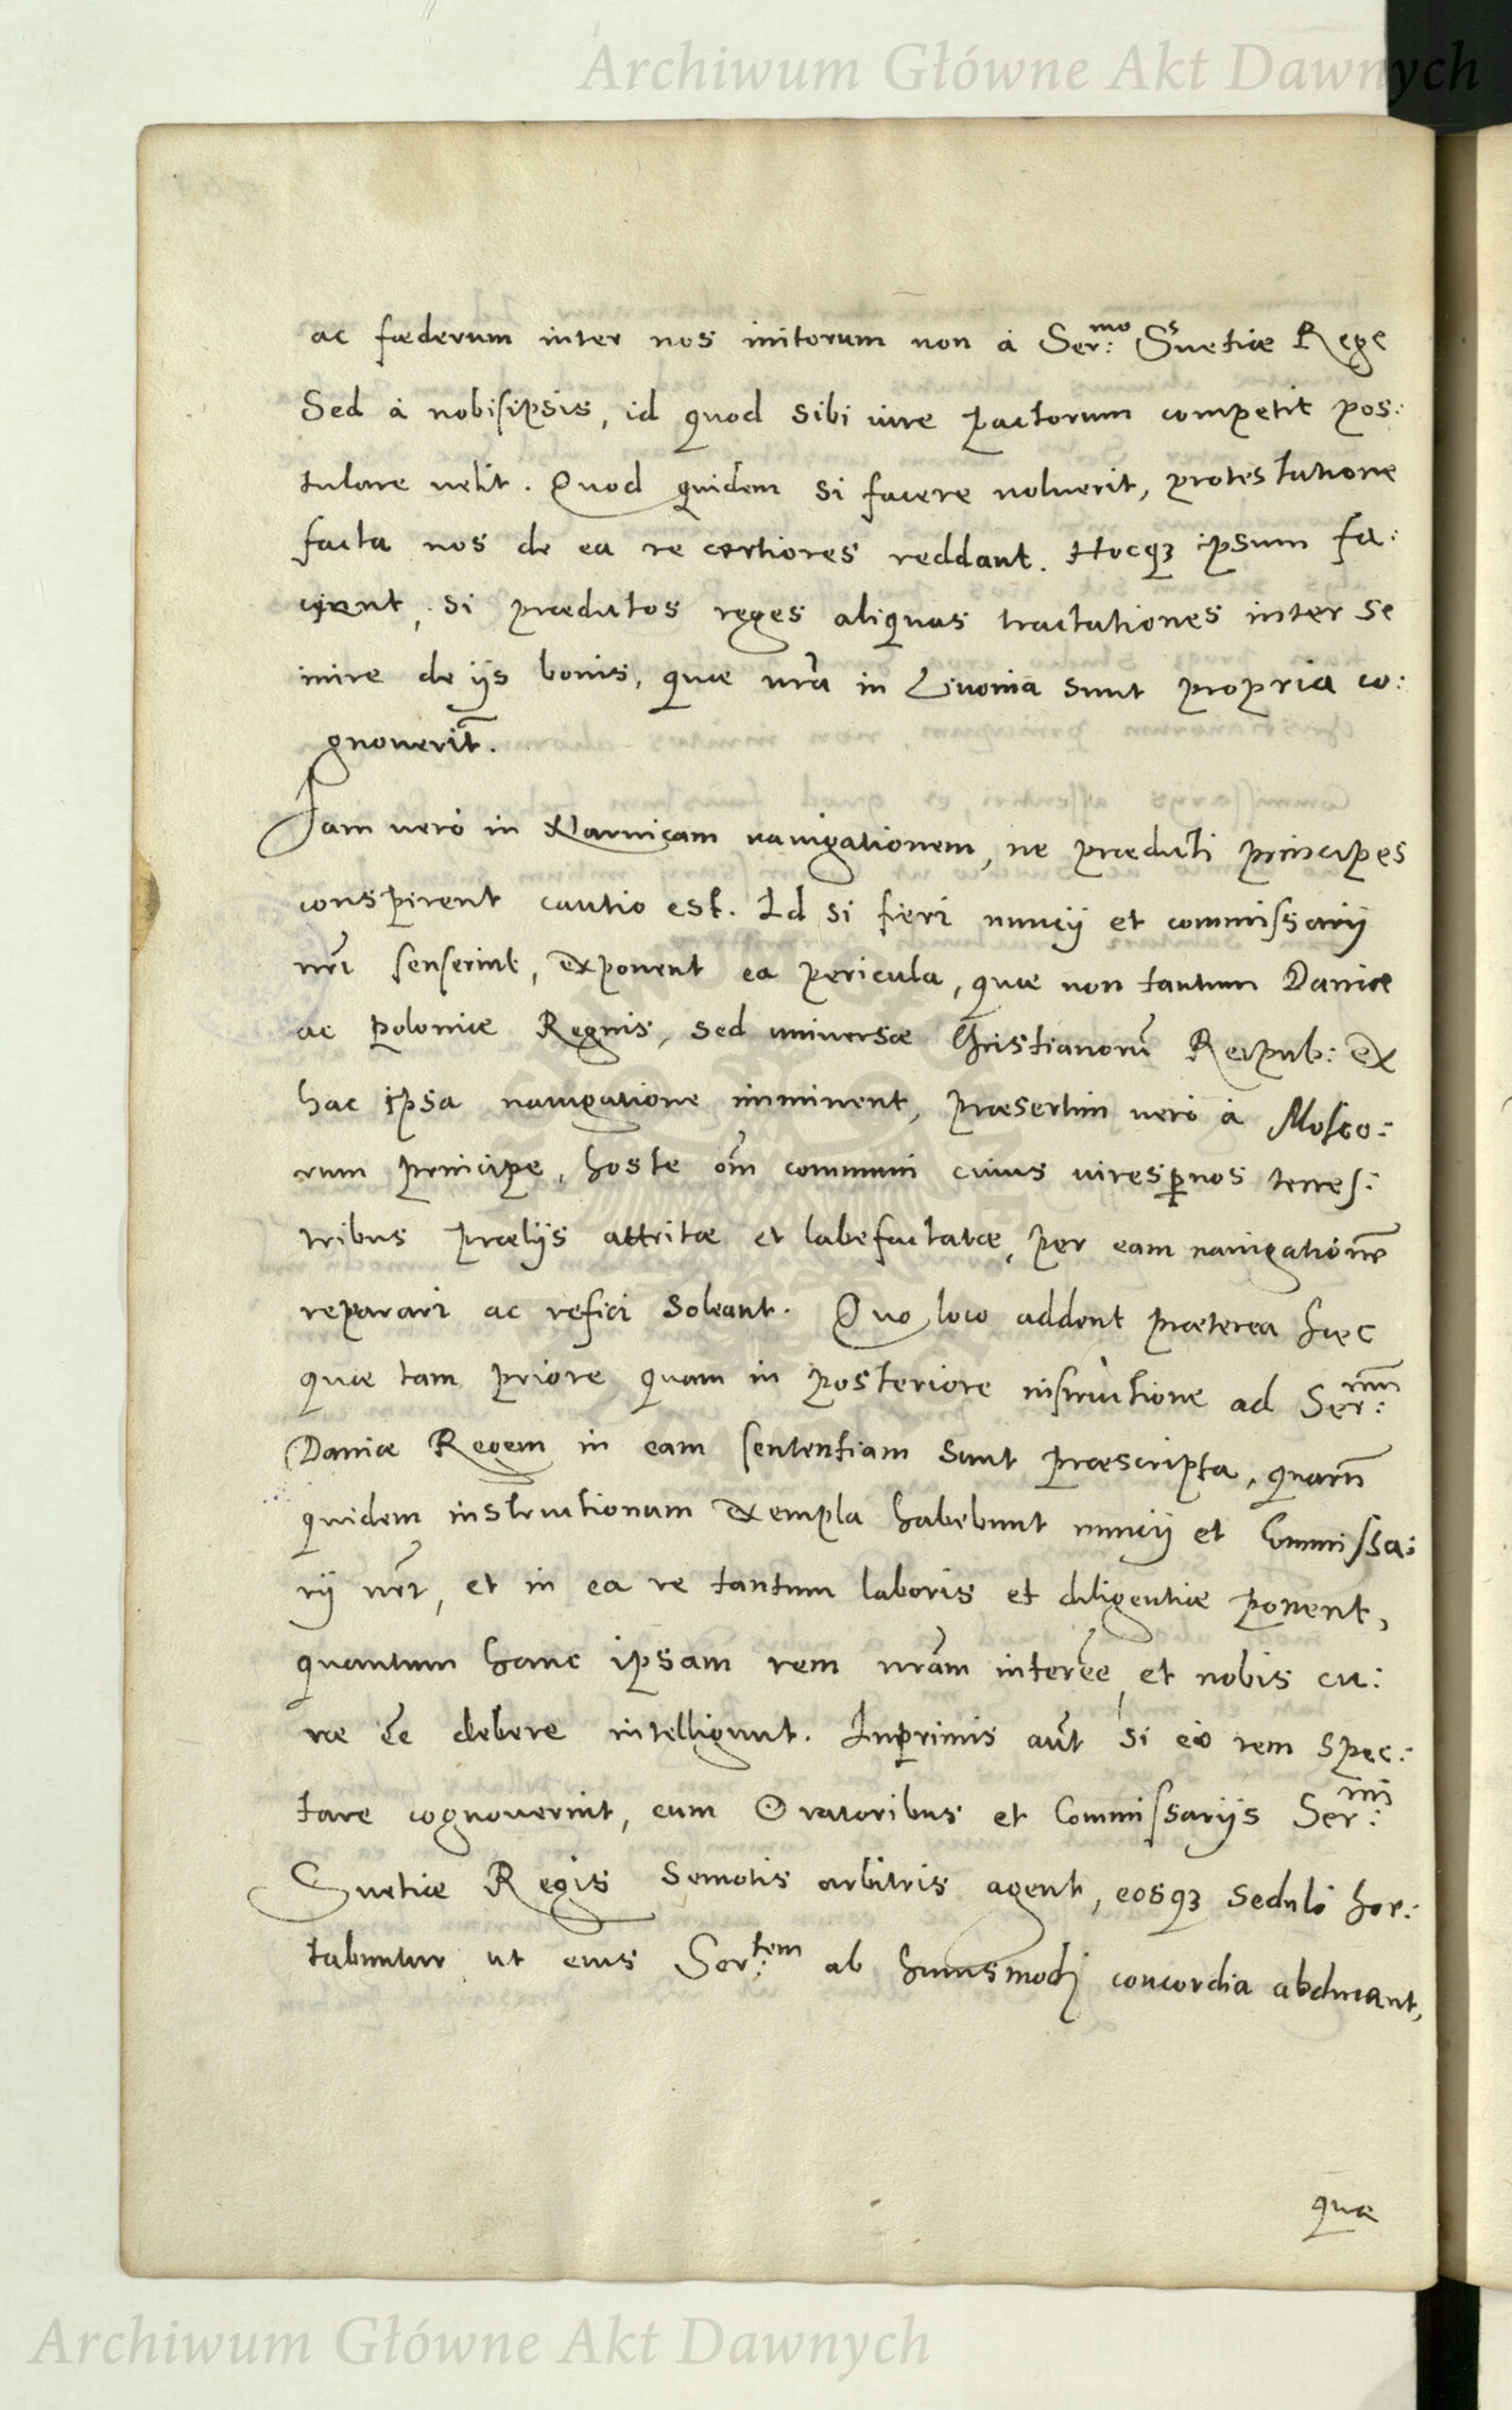 Archiwum Główne Akt Dawnych
ac fœderum inter nos initorum non à Ser:mo Suetiæ Rege
Sed à nobisipsis, id quod sibi iure pactorum competit pos:
tulare uelit. Quod quidem si facere noluerit, protestatione
facta nos de ea re certiores reddant. Hocqȝ ipsum fa:
cient, si prædictos reges aliquas tractationes inter se
inire de ijs bonis, quæ nrã in Liuonia sunt propria co:
gnouerint̃.
Jam uerò in Naruicam nauigationem, ne prædicti principes
conspirent cautio est. Id si fieri nuncij et commißarij
nrĩ senserint, exponent ea pericula, quæ non tantum Daniæ
ac Poloniæ Regnis, sed uniuersæ Christianorũ Reipub: ex
hac ipsa nauigatione imminent, præsertim uerò à Mosco:
rum principe, hoste om̃ communi cuius uires ꝑ nos terres:
tribus prælijs attritæ et labefactatæ, per eam nauigationẽ
reparari ac refici soleant. Quo loco addent præterea hæc
quæ tam priore quam in posteriore instructione ad Ser:mum
Daniæ Regem in eam sententiam sunt præscripta, quarũ
quidem instructionum exempla habebunt nuncij et Commissa:
rij nrĩ, et in ea re tantum laboris et diligentiæ ponent,
quantum hanc ipsam rem nrãm intereẽ, et nobis cu:
ræ eẽ debere intelligunt. Inprimis aut̃ si eò rem spec:
tare cognouerint, cum Oratoribus et Commißarijs Ser:mi
Suetiæ Regis semotis arbitris agent, eosqȝ sedulò hor:
tabuntur ut eius Ser:tem ab huiusmodj concordia abducant,
quæ
Archiwum Główne Akt Dawnych